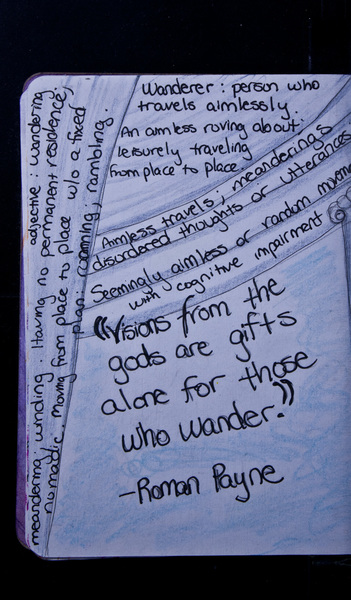 Wanderer : person who
travels aimlessly.
An aimless roving about;
leisurely traveling
from place to place
Aimless travels; meanderings
disordered thoughts or utterances
Seemingly aimless or random movem
with cognitive impairment
"Visions from the
gods are gifts
alone for those
who wander."
-Roman Payne
adjective : wandering.
meandering. winding. Having no permanent residence;
nomadic. moving from place to place w/o a fixed
plan. roaming; rambling.